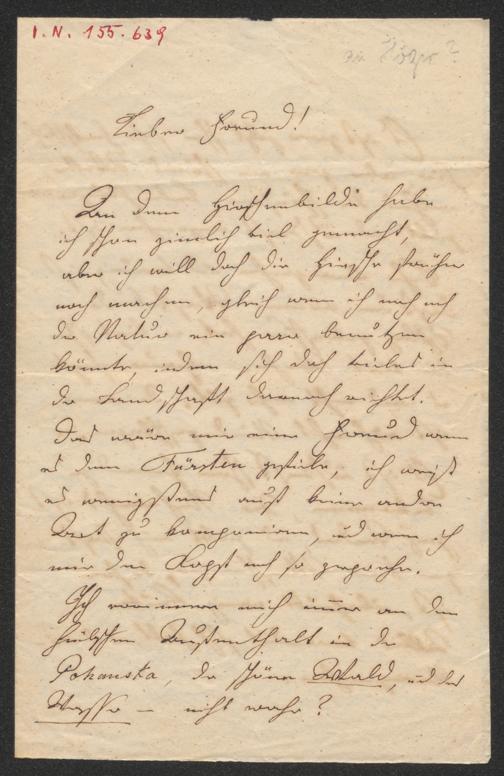 I. N. 155.639
Lieber Freund!
An dem Hirschenbilde habe
ich schon ziemlich viel gemacht,
aber ich will doch die Hirsche früher
noch machen, gleich wenn ich noch nach
der Natur ein paar benützen
könnte, indem sich doch vieles in
der Landschaft darnach richtet.
Das wäre mir eine Freude wenn
es dem Fürsten gefiele, ich weiß
es wenigstens auf keine andere
Art zu komponieren, und wenn ich
mir den Kopf noch so zerreiße.
Ich erinnere mich immer an den
hübschen Aufenthalt in der
Pohanska, der schöne Wald, und das
Wasser – nicht wahr?